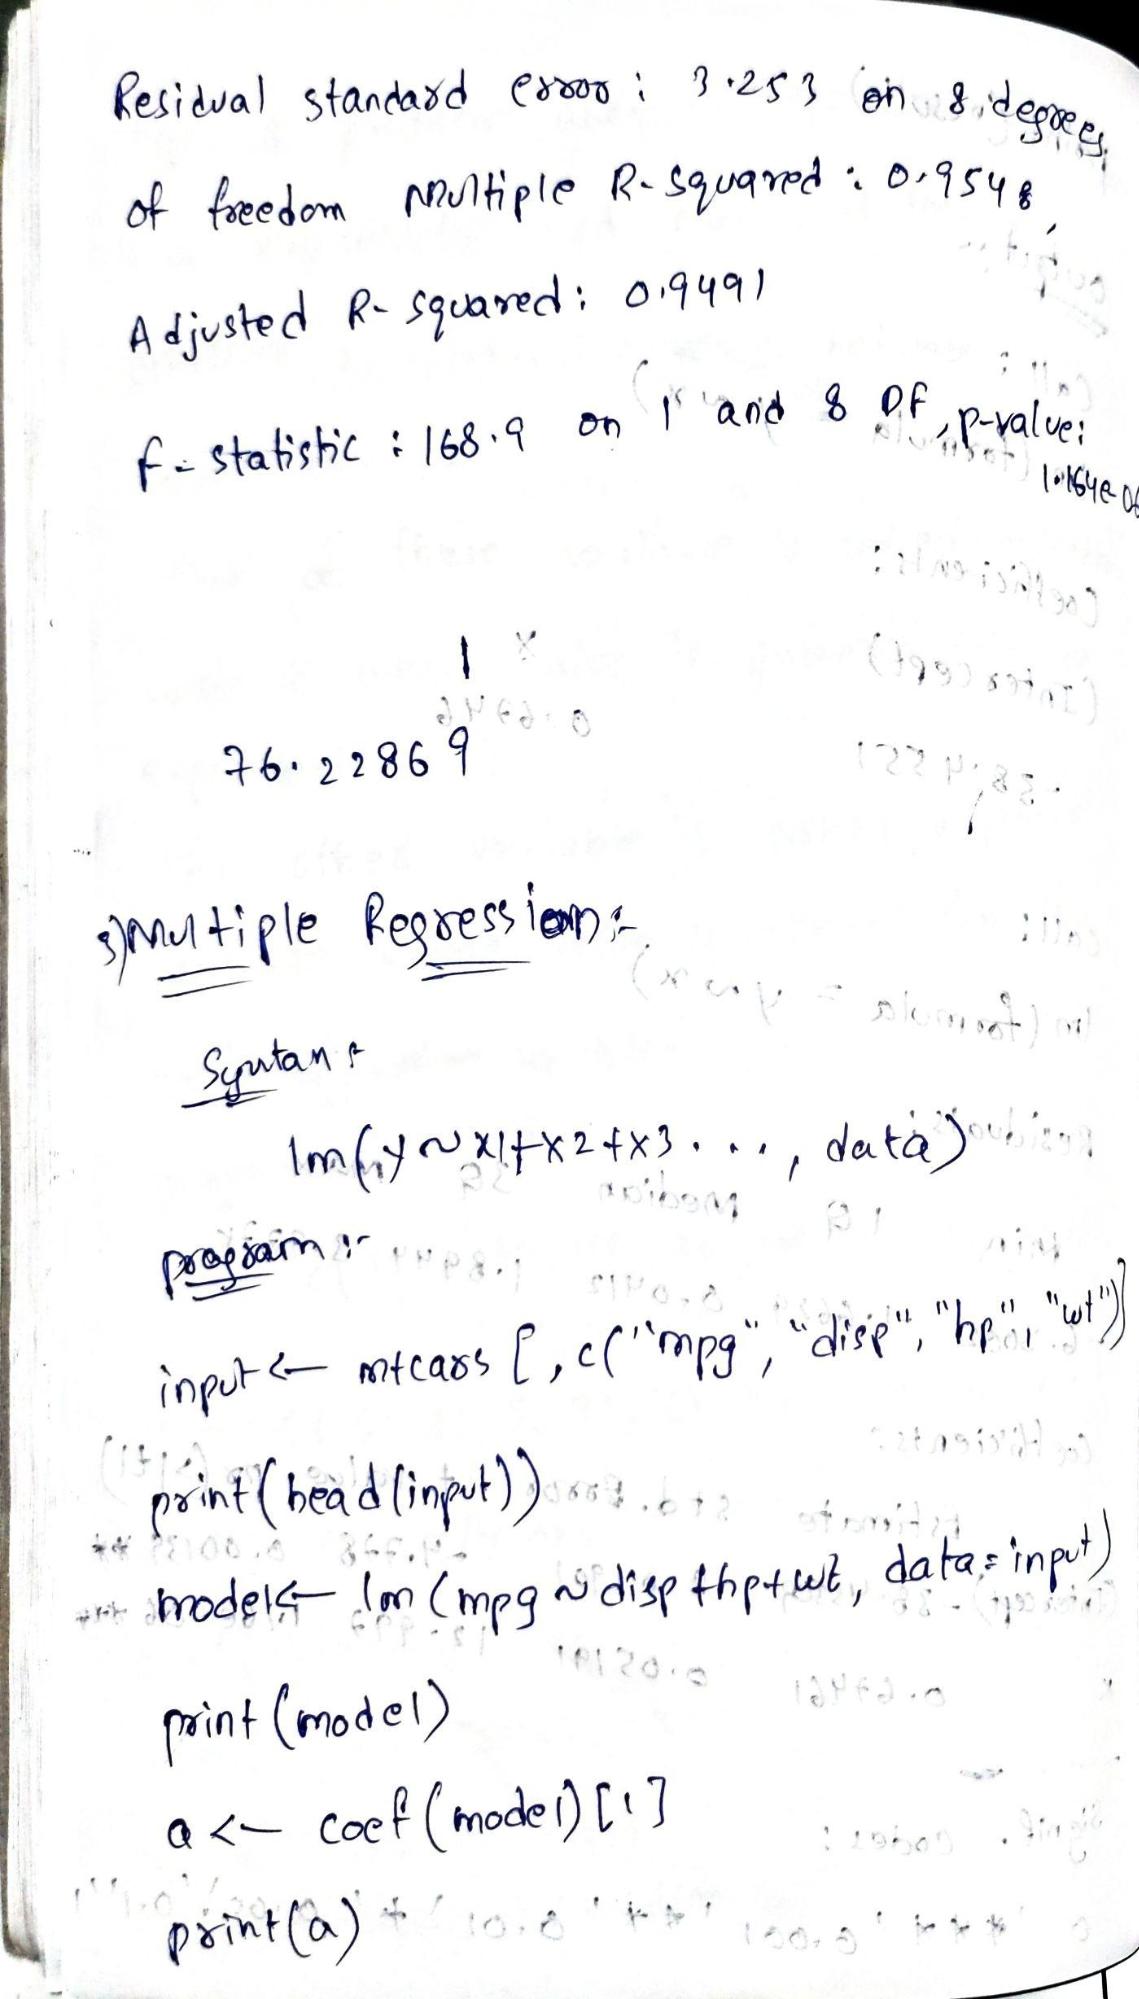 Residual standard error: 3.253 on 8 degrees
of freedom Multiple R-squared: 0.9548,
Adjusted R-squared: 0.9491
F-statistic: 168.9 on 1 and 8 DF, p-value:
1.164e-06
1
76.22869
3) Multiple Regression:-
Syntax:-
lm(y ~ x1+x2+x3..., data)
program:-
input <- mtcars [, c("mpg", "disp", "hp", "wt")]
print(head(input))
model <- lm (mpg ~ disp +hp+wt, data = input)
print (model)
a <- coef (model) [1]
print(a)